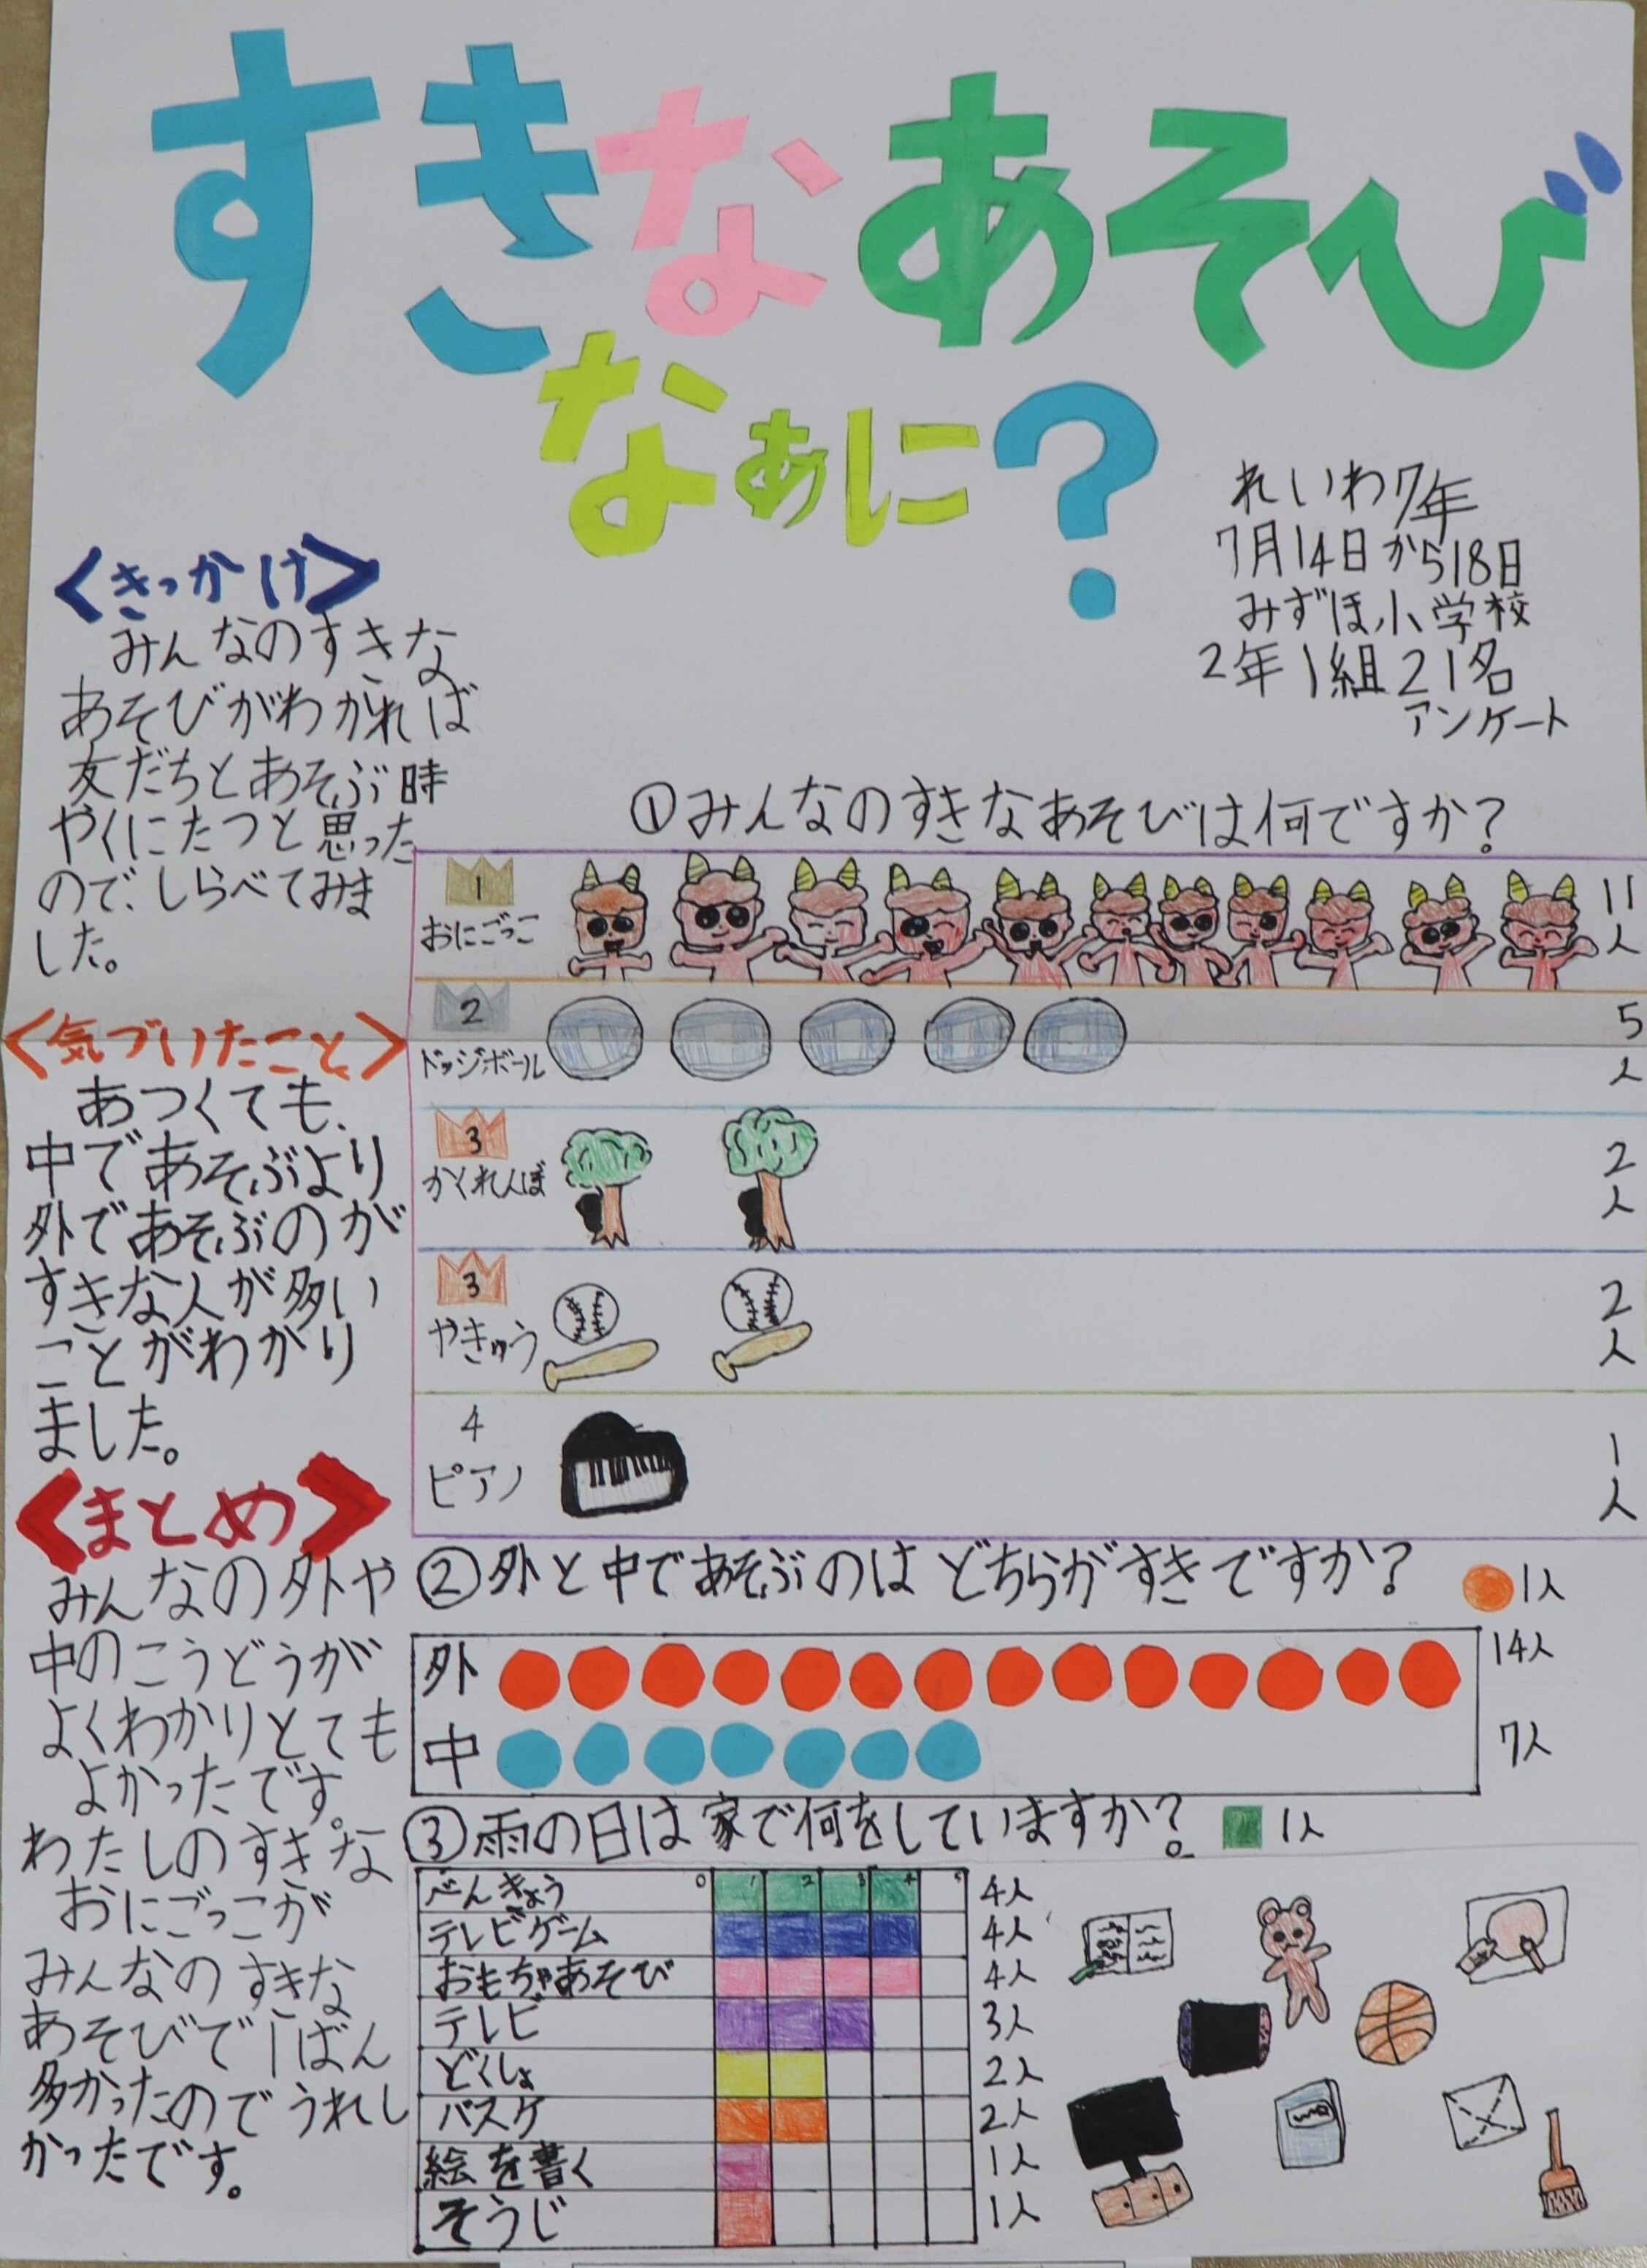 すきなあそび
なぁに?
れいわ7年
7月14日から18日
みずほ小学校
2年1組21名
アンケート
<きっかけ>
みんなのすきな
あそびがわかれば
友だちとあそぶ時
やくにたつと思った
ので、しらべてみま
した。
<気づいたこと>
あつくても、
中であそぶより
外であそぶのが
すきな人が多い
ことがわかり
ました。
<まとめ>
みんなの外や
中のこうどうが
よくわかりとても
よかったです。
わたしのすきな
おにごっこが
みんなのすきな
あそびで1ばん
多かったのでうれし
かったです。
①みんなのすきなあそびは何ですか?
1
おにごっこ
11人
2
ドッジボール
5人
3
かくれんぼ
2人
3
やきゅう
2人
4
ピアノ
1人
②外と中であそぶのはどちらがすきですか?
1人
外
14人
中
7人
③雨の日は家で何をしていますか?
1人
0 1 2 3 4 5
べんきょう 4人
テレビゲーム 4人
おもちゃあそび 4人
テレビ 3人
どくしょ 2人
バスケ 2人
絵を書く 1人
そうじ 1人